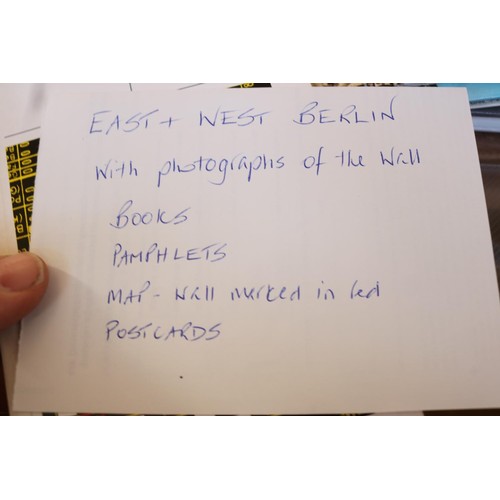 EAST + WEST BERLIN
With photographs of the Wall
BOOKS
PAMPHLETS
MAP - Wall marked in red
POSTCARDS